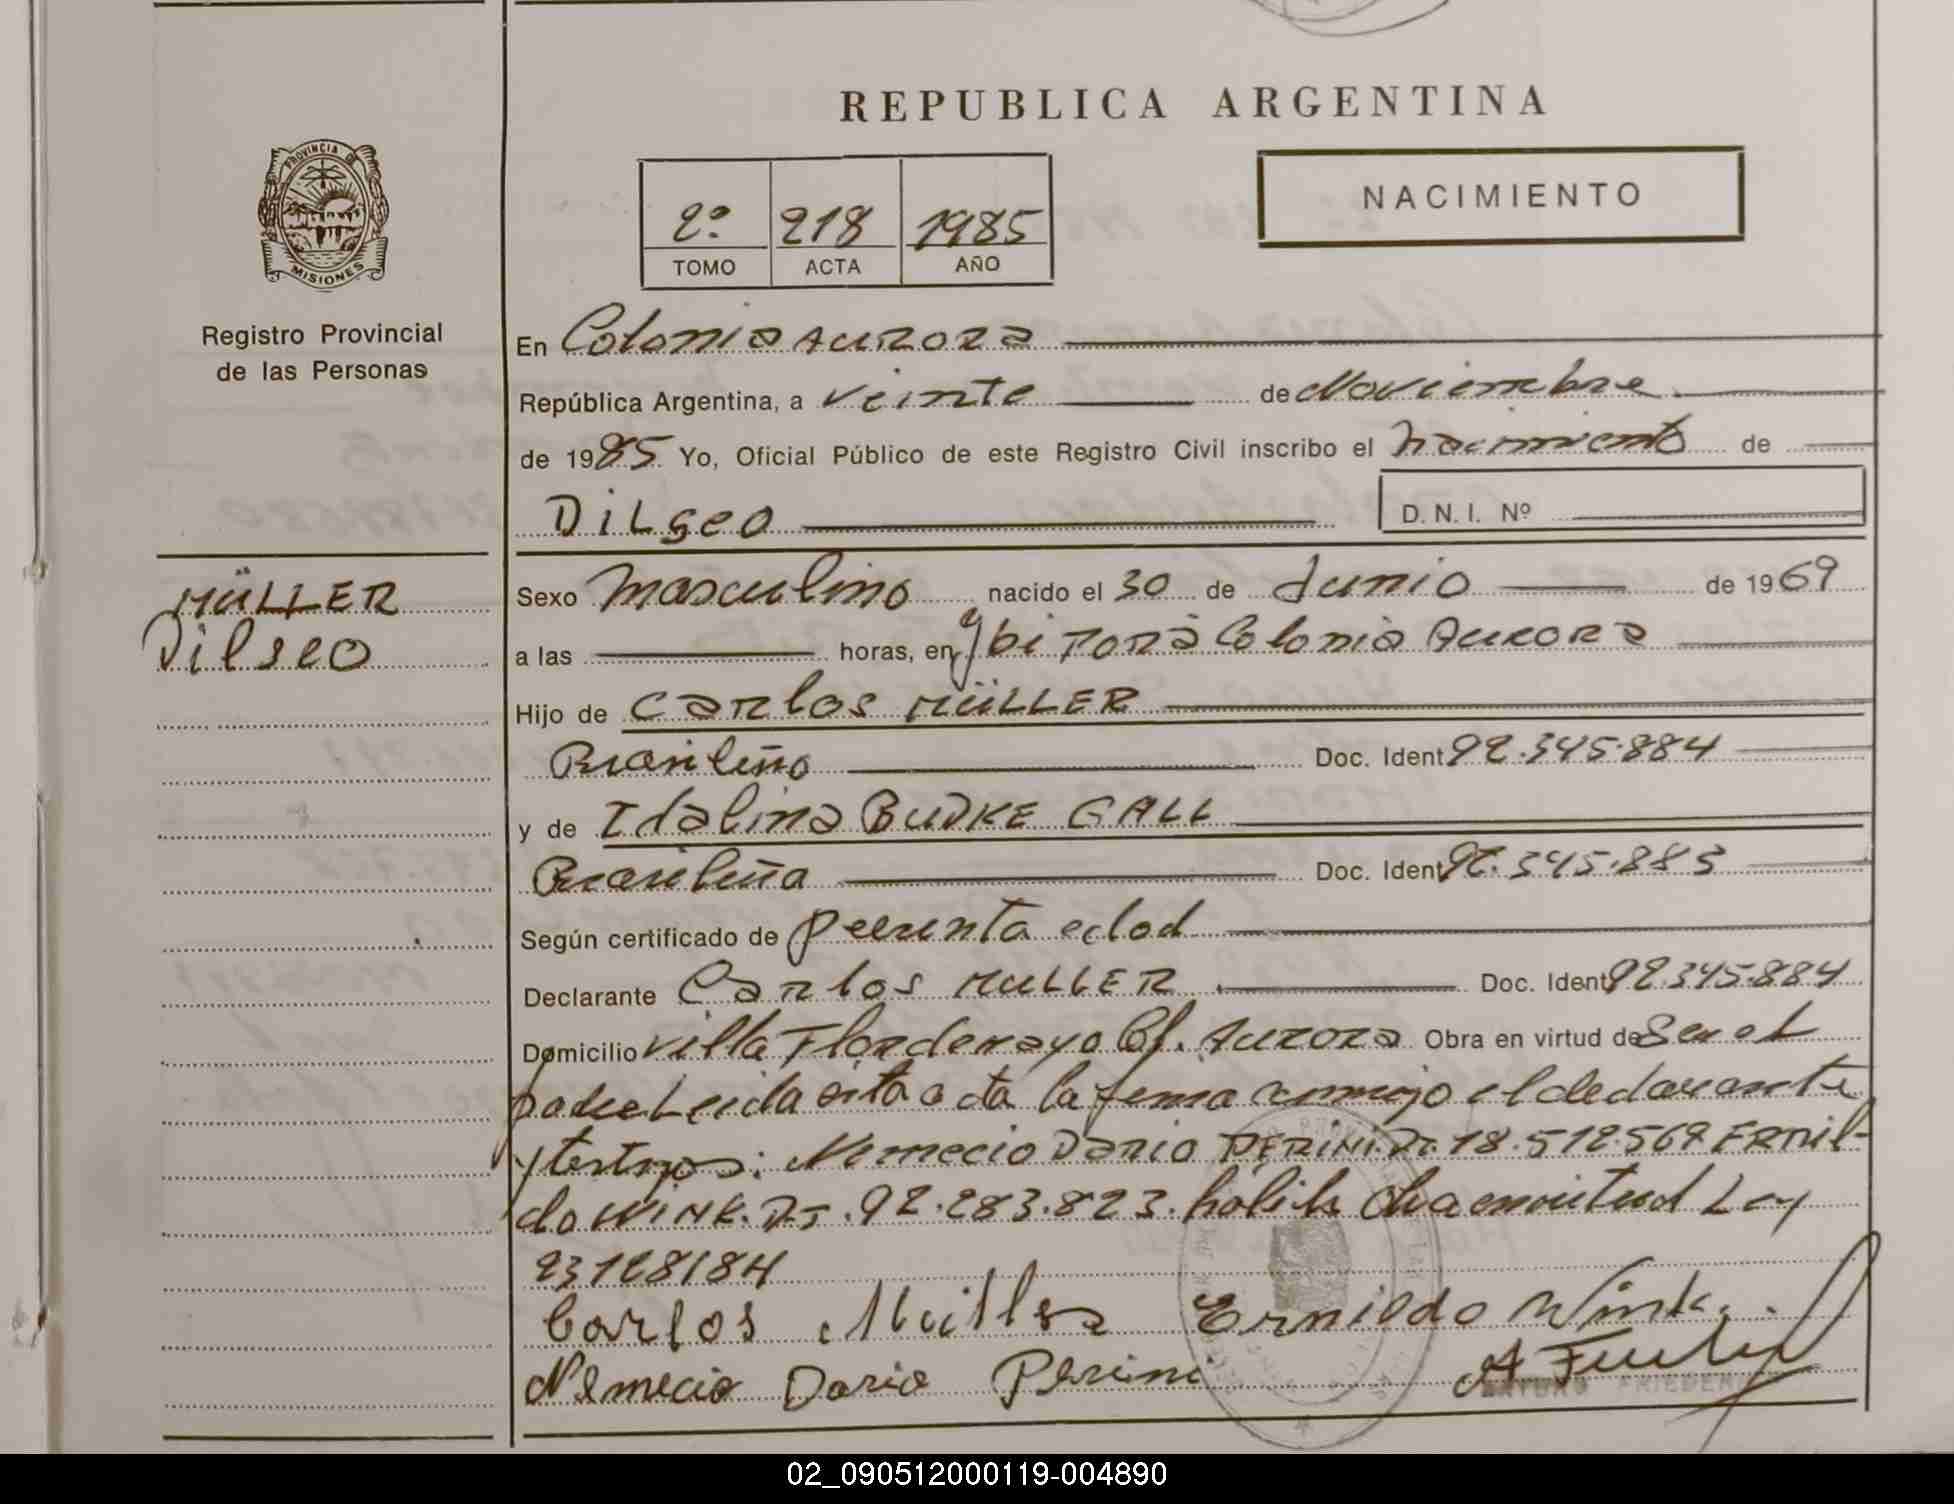 REPUBLICA ARGENTINA
PROVINCIA DE
MISIONES
Registro Provincial
de las Personas
2º 218 1985
TOMO ACTA AÑO
NACIMIENTO
En Colonia Aurora
República Argentina, a veinte de Noviembre
de 1985 Yo, Oficial Público de este Registro Civil inscribo el nacimiento de
Dilseo D.N.I. Nº
MÜLLER
Dilseo
Sexo masculino nacido el 30 de Junio de 1969
a las horas, en Ybi Porá Colonia Aurora
Hijo de Carlos MÜLLER
Brasileño Doc. Ident 92.345.884
y de Idalina BUDKE GALL
Brasileña Doc. Ident 92.345.883
Según certificado de presunta edad
Declarante Carlos MULLER Doc. Ident 92.345.884
Domicilio Villa Flor de mayo Cl. Aurora Obra en virtud de Ser el
padre Leida esta acta la firma conmigo el declarante
y testigos: Nemecio Dario PERINI. DI. 18.512.569 Ernil-
do WINK. DI. 92.283.823. Ley
23128/84
Carlos Müller Ernildo Wink.
Nemecio Dario Perini
ARTURO FRIEDER
02_090512000119-004890